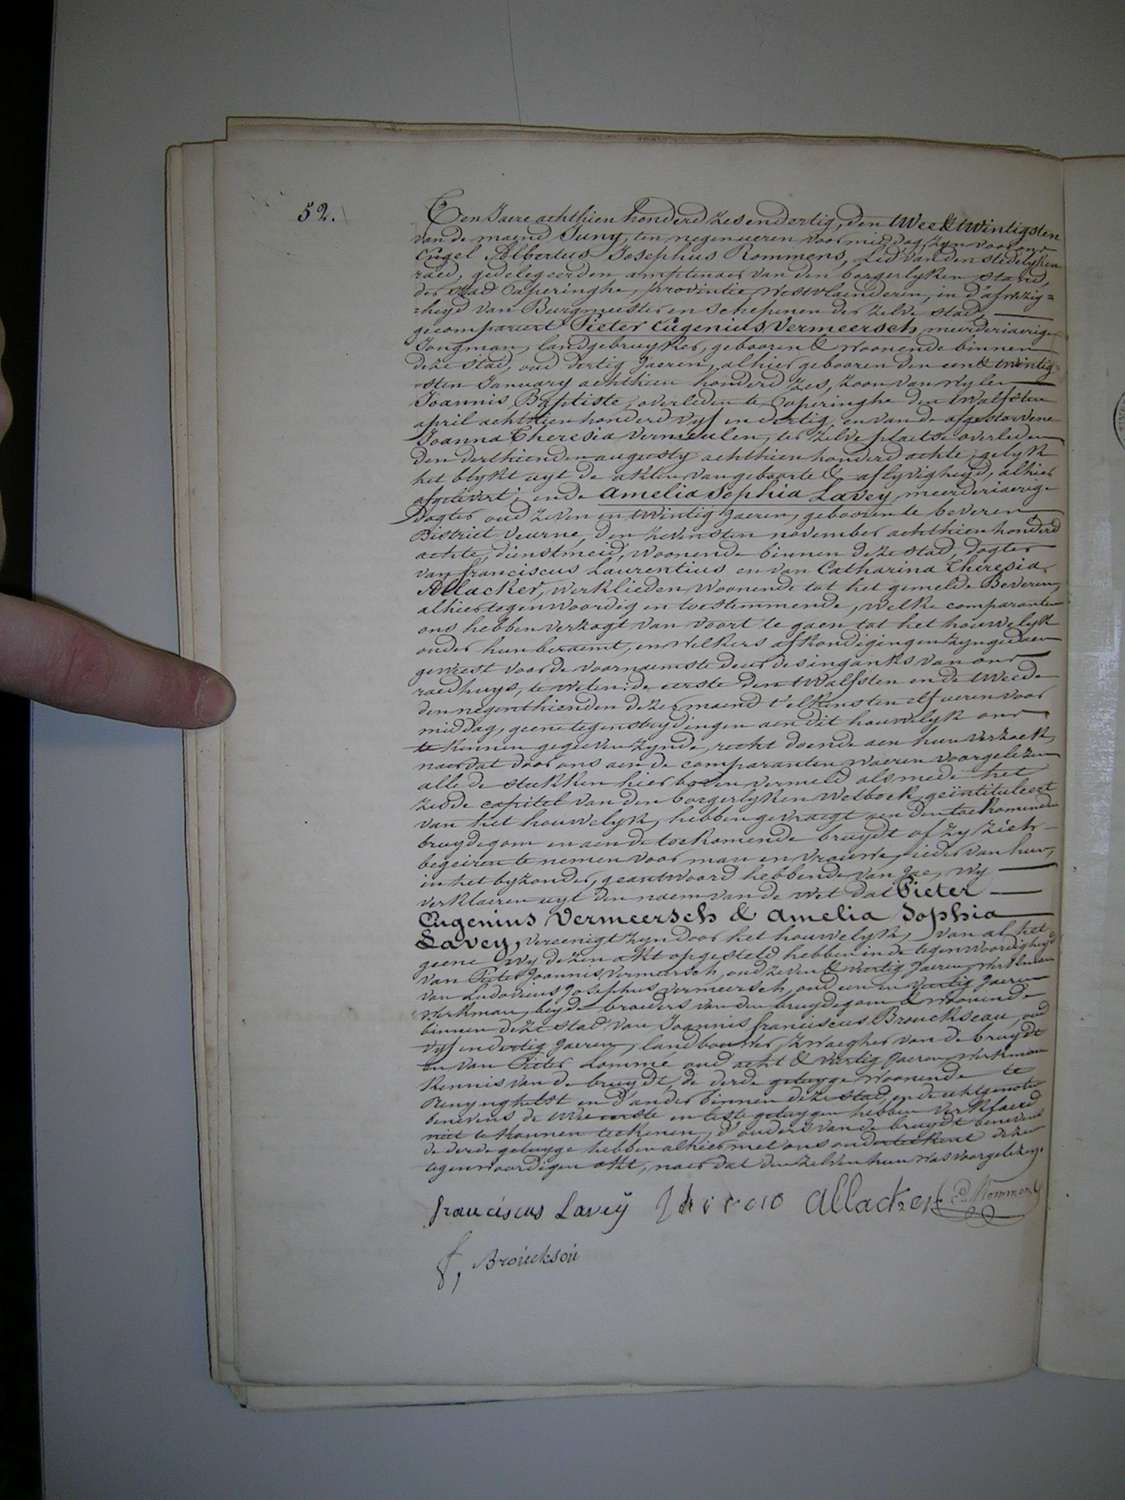 52.
Ten Jaere achthien honderd zesendertig, den twee & twintigsten
van de maend Juny, ten negen ueren voor middag zyn voor ons
Engel Albertus Josephus Rommens, Lid van den stedelyken
raed, gedelegeerden amptenaer van den borgerlyken stand,
der stad Poperinghe, provintie Westvlaenderen, in d'afwezig=
=heyd van Burgmeester en Schepenen der zelve stad,
gecompareert Pieter Eugenius Vermeersch, meerderjaerige
Jongman, landgebruyker, gebooren & woonende binnen
deze stad, oud dertig Jaeren, alhier gebooren den een & twintig-
-sten January achthien honderd zes, zoon van wylen
Joannis Baptiste, overleden te Poperinghe den twalfsten
april achthien honderd vyf en dertig, en van de afgestorvene
Joanna Theresia Vermeulen, ter zelve plaetse overleden
den derthienden augusty achthien honderd achte, gelyk
het blykt uyt de akten van geboorte & aflyvigheyd, alhier
afgelevert; ende Amelia Sophia Lavey, meerderjaerige
Dogter oud zeven en twintig Jaeren, gebooren te Beveren
District Veurne, den zevensten november achthien honderd
achte, dienstmeid, woonende binnen deze stad, dogter
van franciscus Laurentius en van Catharina Theresia
Allacker, werklieden woonende tot het gemelde Beveren,
alhier tegenwoordig en toestemmende, welke comparanten
ons hebben verzogt van voort te gaen tot het houwelyk
onder hun beraemt, en welkers afkondigingen zyn gedaen
geweest voor de voornaemste deur des inganks van ons
raedhuys, te weten: de eerste den twalfsten en de tweede
den negenthienden dezer maend t'elkensten elf ueren voor
middag, geene tegenstrydingen aen dit houwelyk ons
te kennen gegeven zynde, recht doende aen hun verzoek,
naer dat door ons aen de comparanten waeren voorgelezen
alle de stukken hier boven vermeld alsmede het
zesde capitel van den borgerlyken Wetboek, geïntituleert
van het houwelyk, hebben gevraegt aen den toekomenden
bruydegom en aen de toekomende bruydt of zy zich
begeiren te nemen voor man en vrouwe, ieder van hun,
in het byzonder, geantwoord hebbende van Jae, wy
verklaeren uyt den naem van de wet dat Pieter
Eugenius Vermeersch & Amelia Sophia
Lavey, vereenigt zyn door het houwelyk, van al het
geene wy dezen akt opgesteld hebben in de tegenwoordigheyd
van Pieter Joannis Vermeersch, oud zeven & veertig Jaeren, werkman
van Ludovicus Josephus Vermeersch, oud een en veertig Jaeren
werkman, beyde broeders van den bruydegom & woonende
binnen deze stad van Joannis franciscus Brouckseau, oud
vyf en dertig Jaeren, landbouwer, zwaegher van de bruydt
en van Pieter Lommé oud acht & veertig Jaeren werkman
kennis van de bruydt, de derde getuyge woonende te
Renynghelst en d'ander binnen deze stad, en de echtgenoten
benevens de twee eerste en leste getuygen hebben verklaerd
niet te konnen teekenen, d'ouders van de bruydt benevens
de derde getuyge hebben alhier met ons onderteekent dezen
tegenwoordigen akt, naer dat den zelven hun was voorgelezen.
franciscus Lavey Allacker Rommens
f, Brouckson